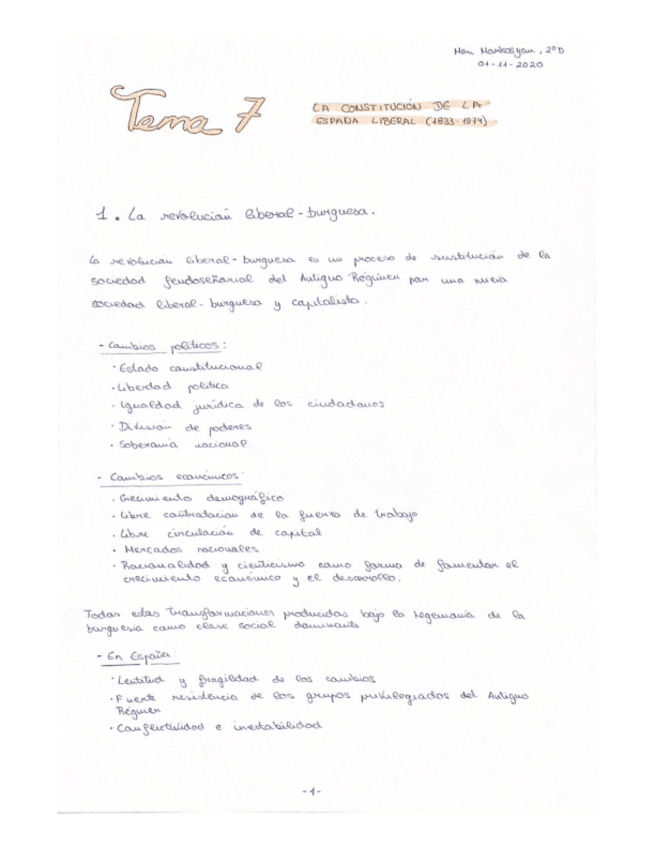 Mon Markosyan, 2ºD
01-11-2020
Tema 7
LA CONSTITUCIÓN DE LA
ESPAÑA LIBERAL (1833-1874)
1. La revolución liberal-burguesa.
La revolución liberal-burguesa es un proceso de sustitución de la
sociedad feudoseñorial del Antiguo Régimen por una nueva
sociedad liberal-burguesa y capitalista.
- Cambios políticos:
· Estado constitucional
· Libertad política
· Igualdad jurídica de los ciudadanos
· División de poderes
· Soberanía nacional
- Cambios económicos:
· Crecimiento demográfico
· Libre contratación de la fuerza de trabajo
· Libre circulación de capital
· Mercados nacionales
· Racionalidad y cienticismo como forma de fomentar el
crecimiento económico y el desarrollo.
Todas estas transformaciones producidas bajo la hegemonía de la
burguesía como clase social dominante.
- En España:
· Lentitud y fragilidad de los cambios
· Fuerte resistencia de los grupos privilegiados del Antiguo
Régimen
· Conflictividad e inestabilidad
-1-